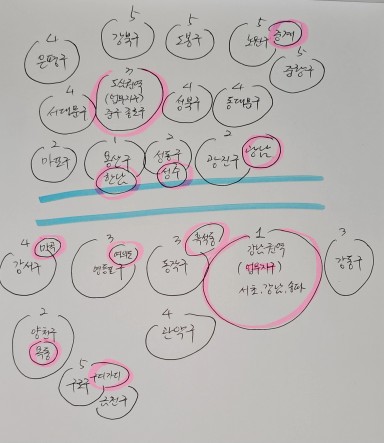 5 5 5
강북구 도봉구 노원구 중계
4
은평구
5
중랑구
3
도심권역
(업무지구)
중구 종로구
4
서대문구
4
성북구
4
동대문구
2
마포구
1
용산구
한남
2
성동구
성수
2
광진구
광남
4
강서구
마곡
3
영등포구
여의도
3
동작구
흑석동
1
강남권역
(업무지구)
서초, 강남, 송파
3
강동구
2
양천구
목동
4
관악구
5
구로구
금천구